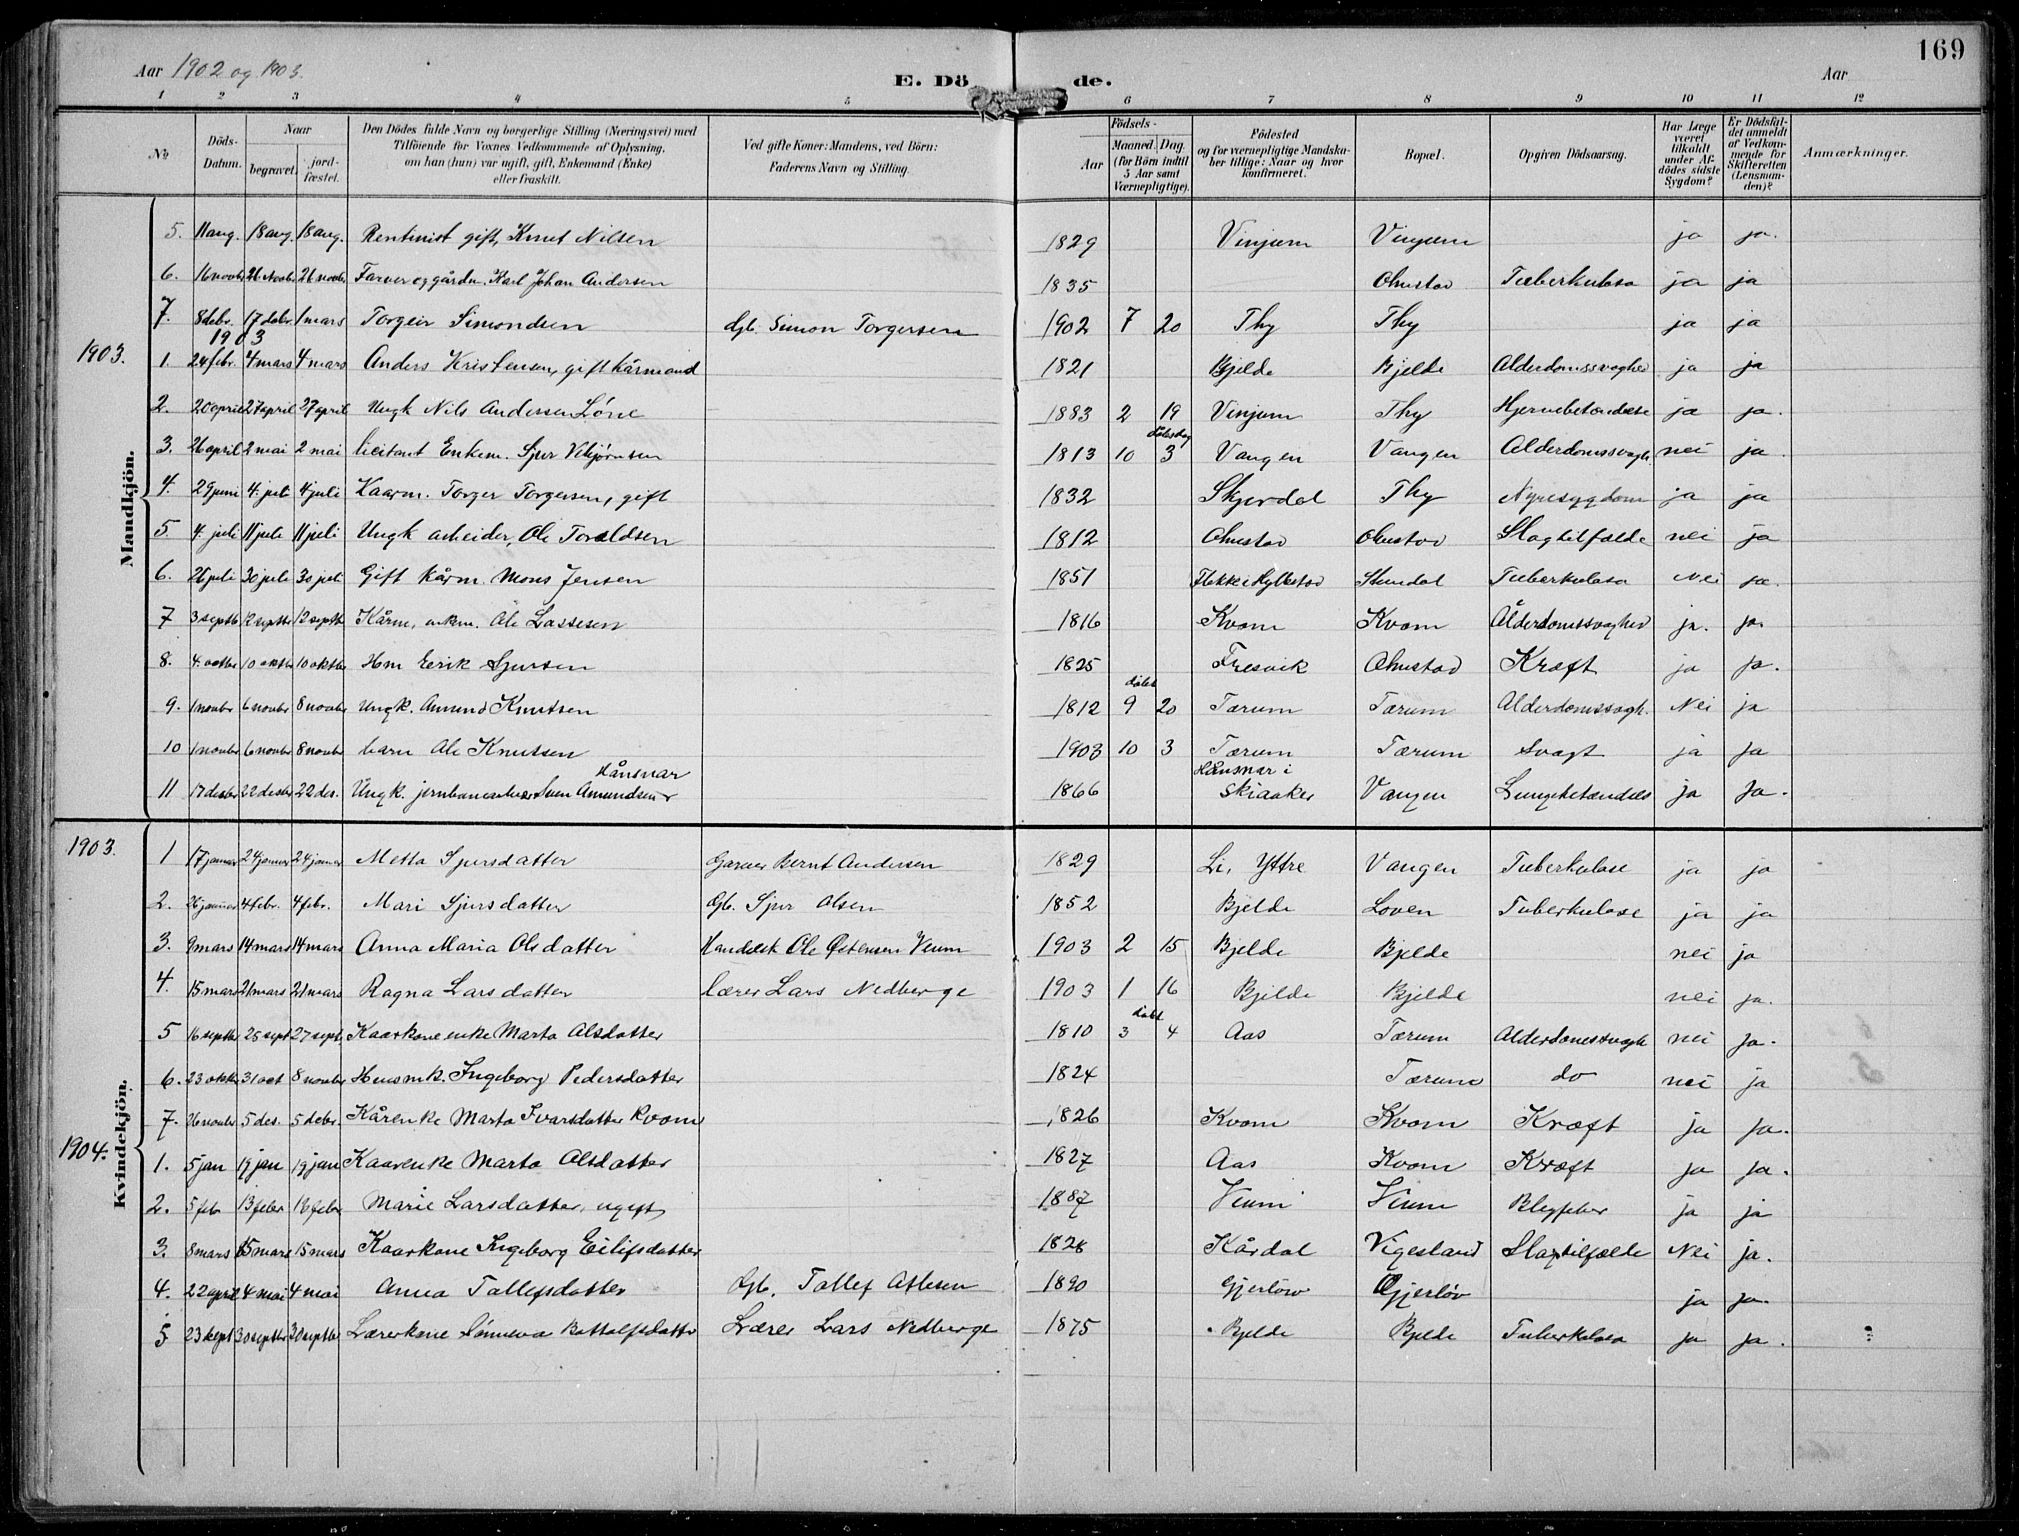 169
Aar 1902 og 1903. E. Dö de. Aar
1 2 3 4 5 6 7 8 9 10 11 12
No Döds-Datum. Naar begravet. jord-fæstet. Den Dödes fulde Navn og borgerlige Stilling (Næringsvei) med Tilföiende for Voxnes Vedkommende af Oplysning, om han (hun) var ugift, gift, Enkemand (Enke) eller fraskilt. Ved gifte Koner: Mandens, ved Börn: Faderens Navn og Stilling. Födsels- Aar Maaned. Dag. (for Börn indtil 5 Aar samt Værnepligtige). Födested og for værnepligtige Mandskaber tillige: Naar og hvor konfirmeret. Bopæl. Opgiven Dödsaarsag. Har Læge været tilkaldt under Afdödes sidste Sygdom? Er Dödsfaldet anmeldt af Vedkommende for Skifteretten (Lensmanden)? Anmærkninger.
Mandkjön.
5. 11 aug. 18 aug. 18 aug. Rentinist gift, Knut Nilsen 1829 Vinjum Vinjum ja ja.
6. 16 novbr 26 Novbr 26 novbr. Farver og gårdm. Karl Johan Andersen 1835 Ohnstad Tuberkulosa ja ja
7. 8 debr. 17 debr. 1 mars Torgeir Simondsen Gb. Simon Torgersen 1902 7 20 Thy Thy ja ja
1903
1903. 1. 24 febr. 4 mars 4 mars Anders Kristensen, gift kårmand 1821 Bjelde Bjelde Alderdomssvaghed ja ja
2. 20 april 27 april 27 april Ungk Nils Andersen Löne 1883 2 19 Vinjum Thy Hjernebetændelse ja ja.
3. 26 april 2 mai 2 mai licitant Enkem. Sjur Vibjörnsen 1813 10 dåbsdag 3 Vangen Vangen Alderdomssvagh. nei ja
4. 29 juni 4. juli 4 juli Kaarm. Torger Torgersen, gift 1832 Skjerdal Thy Nyresygdom ja ja
5. 4. juli 11 juli 11 juli Ungk arbeider, Ole Toraldsen 1812 Ohnstad Ohnstad Slagtilfælde nei ja
6. 26 juli 30 juli 30 juli Gift kårm. Mons Jensen 1851 Flekke i Hyllestad Stundal Tuberkulosa Nei ja.
7 3 septb 12 septbr 12 septb Kårm, enkem. Ole Lassesen 1816 Kvam Kvam Ålderdomssvaghed ja. ja.
8. 4. octbr 10 oktbr 10 oktbr Hm Eerik Sjursen 1825 Fresvik Ohnstad Kræft ja ja.
9. 1 novbr 6 novbr 8 novbr Ungk. Amund Knutsen 1812 döbt 9 20 Tærum Tærum Alderdomssvagh. Nei ja
10 1 novbr 6 novbr 8 novbr barn Ole Knutsen 1903 10 3 Tærum Tærum Svagt ja ja
11 17 desbr 22 desbr 22 des. Ungk. jernbanearbeider Sven Amundsen Hånsnar 1866 Hånsnar i Skiaaker Vangen Lungebetændels ja ja.
Kvindekjön.
1903. 1 17 januar 24 januar 24 januar Metta Sjursdatter Garver Bernt Andersen 1829 Li, Yttre Vangen Tuberkulose ja ja
2. 26 januar 4 febr. 4 febr. Mari Sjursdatter Gb. Sjur Olsen 1852 Bjelde Loven Tuberkulose ja ja
3. 9 mars 14 mars 14 mars Anna Maria Olsdatter Handelsk Ole Östensen Veum 1903 2 15 Bjelde Bjelde nei ja
4. 15 mars 21 mars 21 mars Ragna Larsdatter lærer Lars Nedberge 1903 1 16 Bjelde Bjelde nei ja.
5 16 septbr 25 sept 27 sept. Kaarkone enke Marta Olsdatter 1810 3 döbt 4 Aas Tærum Alderdomssvagh nei ja.
6. 23 oktbr 31 oct 8 novbr Husmk. Ingeborg Pedersdatter 1824 Tærum do nei ja
7. 26 novbr 5 des. 5 debr. Kårenke Marta Ivarsdatter Kvam 1826 Kvam Kvam Kræft ja ja.
1904. 1. 5 jan 19 jan 19 jan Kaarenke Marta Olsdatter 1827 Aas Kvam Kræft ja ja.
2. 5 feb 13 febr 13 febr. Marie Larsdatter, ugift 1887 Veum Veum Blegfeber ja ja
3. 8 mars 15 mars 15 mars Kaarkone Ingeborg Eilifsdatter 1828 Kårdal Vigesland Slagtilfælde Nei ja.
4. 22 april 4 mai 4 mai Anna Tollefsdatter Gb. Tollef Atlesen 1890 Gjerlöw Gjerlöv ja ja.
5 23 sept 30 septbr 30 septbr Lærerkone Sönneva Bottolfsdatter Lærer Lars Nedberge 1875 Bjelde Bjelde Tuberkulosa ja ja.